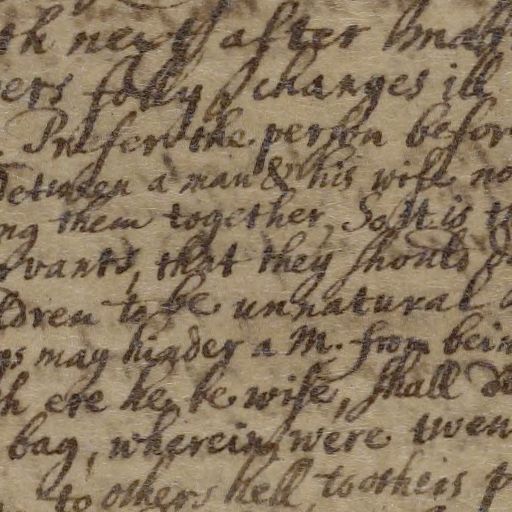 th next after mar
vers folly changes ill
Prefer the person befor
Between a man & his wife no
ng them together, So it is t
rvants, that they should d
ldren to be unnatural
ps may hinder a M. from bein
h ere he be wise, shall d
bag, wherein were twen
to others hell, to others p